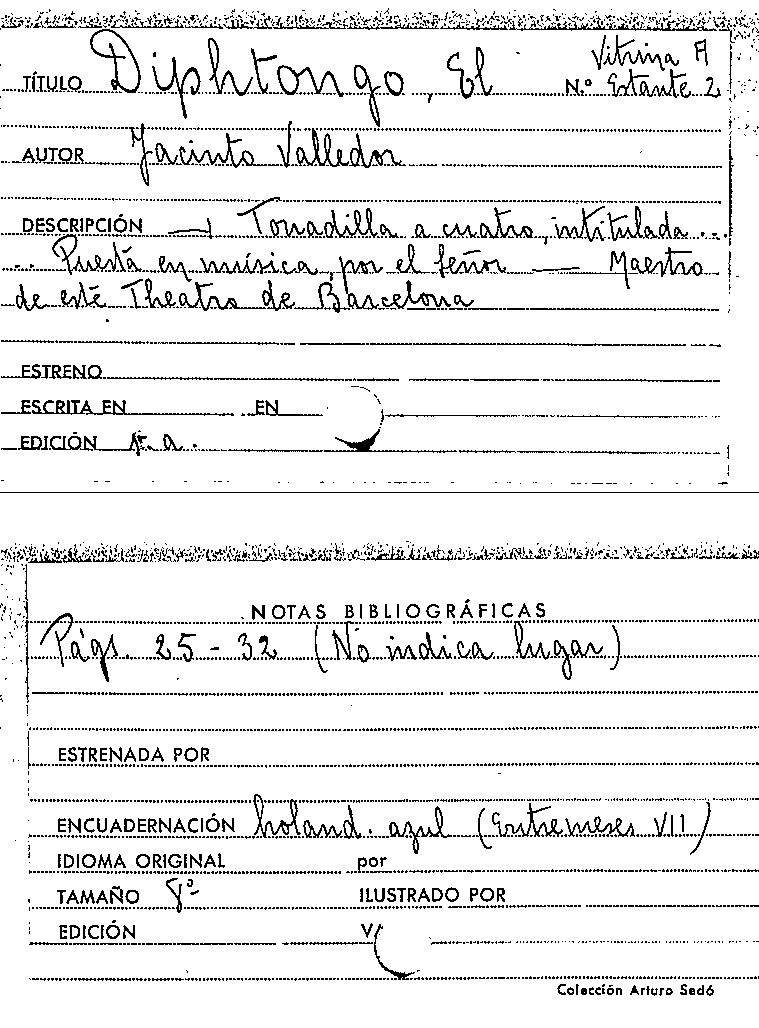 TÍTULO Diphtongo, El Vitrina A
N.º Estante 2
AUTOR Jacinto Valledor
DESCRIPCIÓN — Tonadilla a cuatro, intitulada ...
... Puesta en música, por el señor — Maestro
de este Theatro de Barcelona
ESTRENO
ESCRITA EN EN
EDICIÓN s. a.
NOTAS BIBLIOGRÁFICAS
Págs. 25 - 32 (No indica lugar)
ESTRENADA POR
ENCUADERNACIÓN holand. azul (Entremeses VII)
IDIOMA ORIGINAL por
TAMAÑO 8º ILUSTRADO POR
EDICIÓN
Colección Arturo Sedó